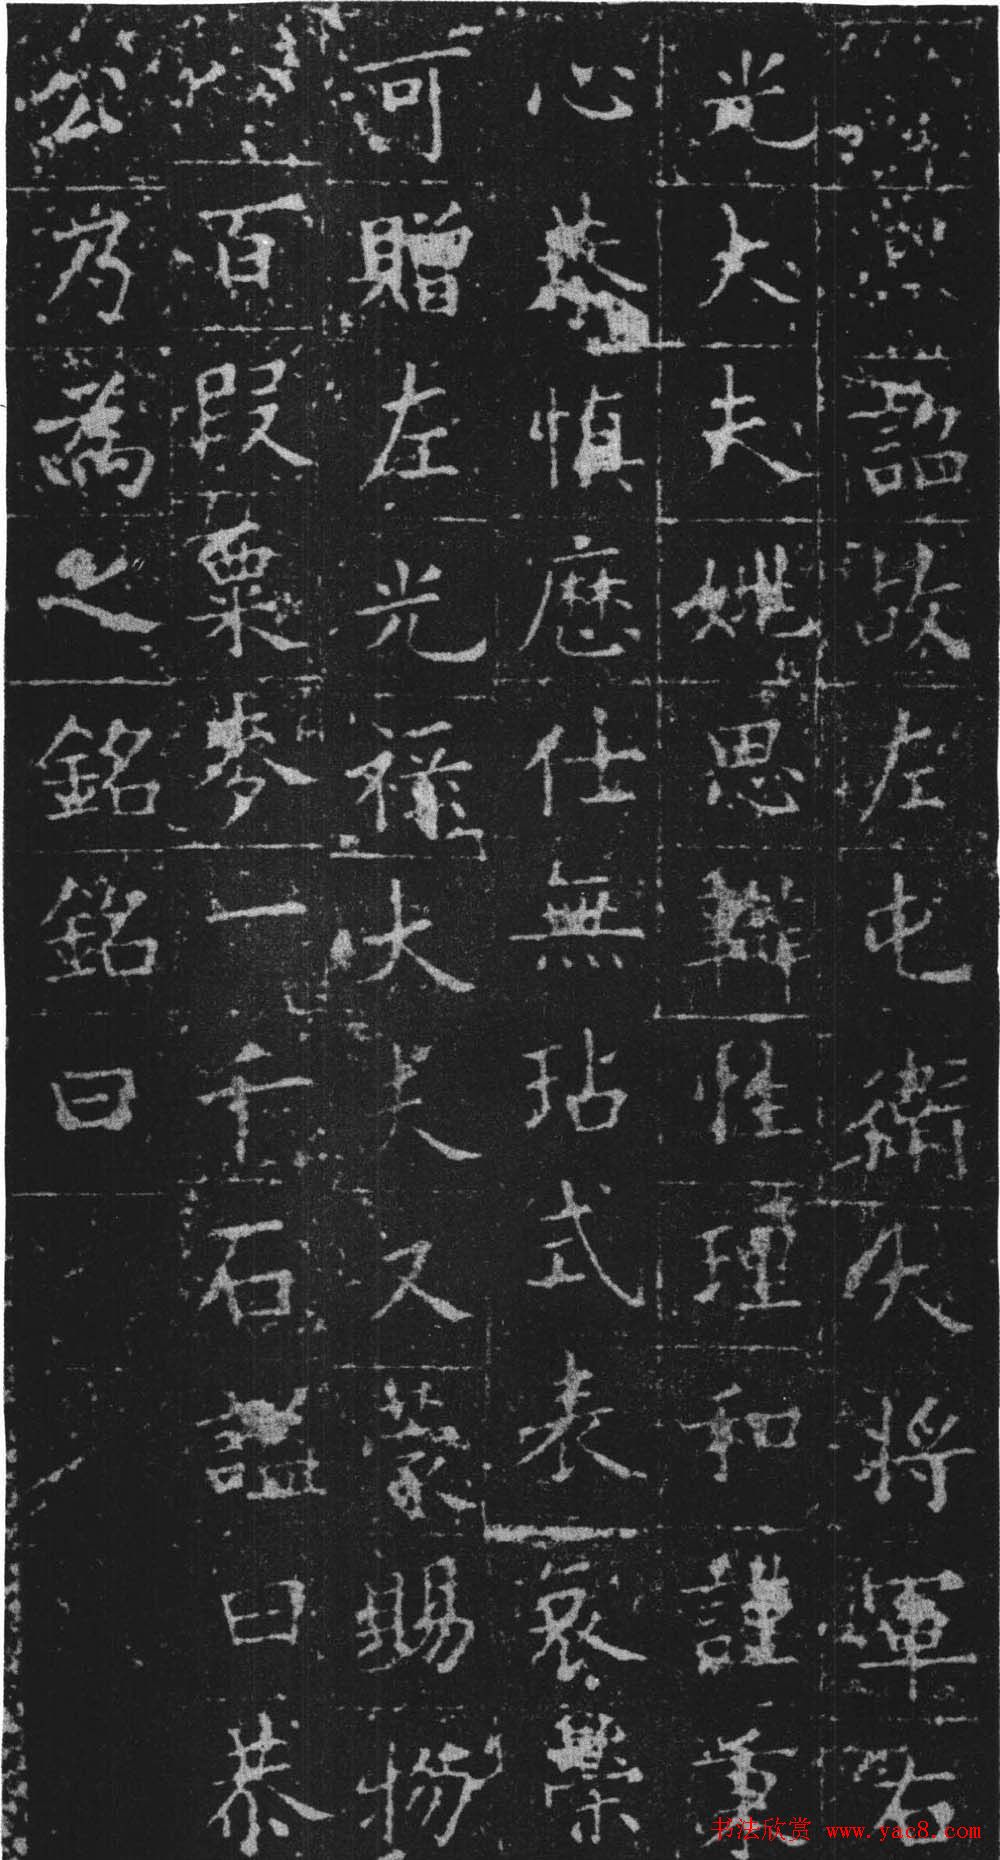 詔故左屯衛大將軍右
光大夫姚思辯性理和謹秉
心恭慎歷仕無玷式表哀榮
可贈左光祿大夫又蒙賜物
百段粟麥一千石謚曰恭
公為之銘銘曰
书法欣赏 www.yac8.com